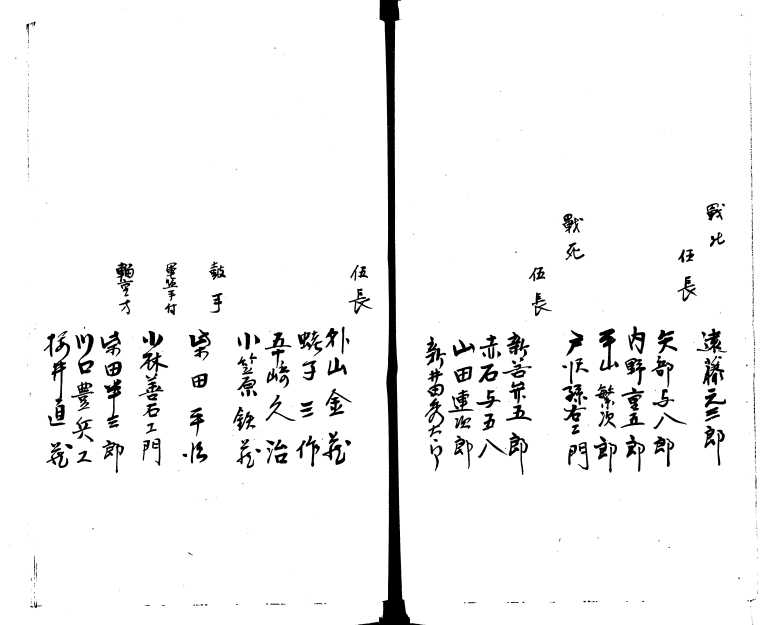 戦死
遠藤元三郎
伍長
矢部与八郎
内野重五郎
平山繁次郎
戦死
戸沢孫右エ門
伍長
新菩弥五郎
赤石与五八
山田連次郎
新井田秀太郎
伍長
外山金蔵
蛯子三作
五十嵜久治
小笠原鉄蔵
鼓手
柴田平治
小林善右エ門
輜重方
柴田半三郎
川口豊兵エ
桜井直蔵